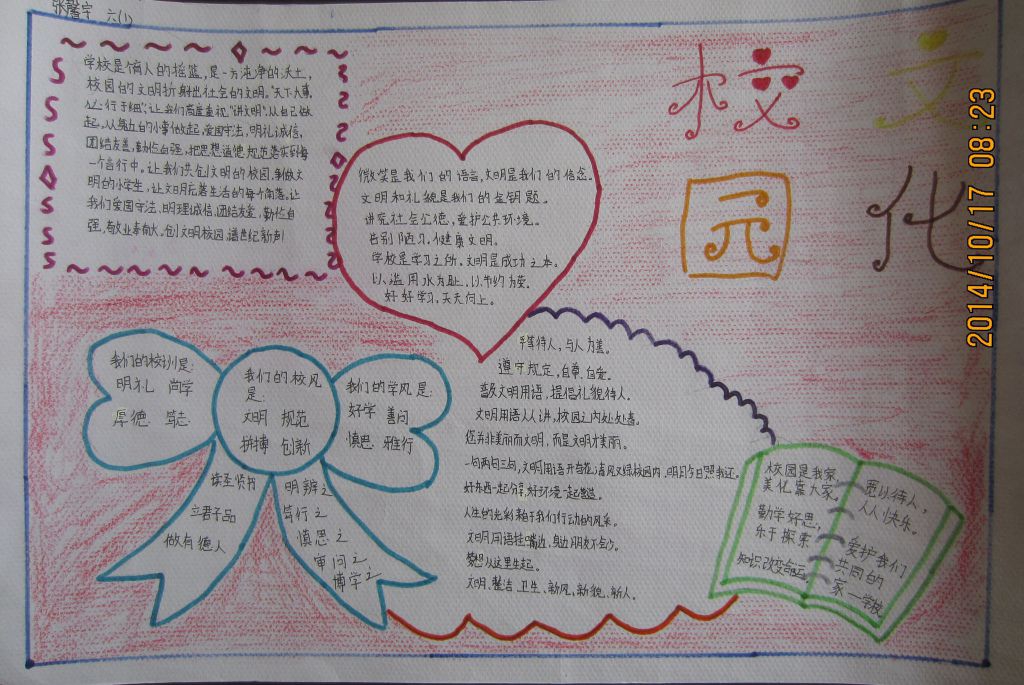 张馨宇 六(1)
校园文化
学校是育人的摇篮,是一方洁净的沃土,
校园的文明折射出社会的文明。"天下大事,
必行于细";让我们高度重视"讲文明",从自己做
起,从身边的小事做起,爱国守法,明礼诚信,
团结友善,勤俭自强,把思想道德规范落实到每
一个言行中。让我们共创文明的校园,争做文
明的小学生,让文明后落生活的每个角落。让
我们爱国守法,明理诚信,团结友爱,勤俭自
强,敬业奉献。创文明校园 谱世纪新声
微笑是我们的语言,文明是我们的信念。
文明和礼貌是我们的金钥题。
讲究社会公德,爱护公共环境。
告别陋习,健康文明。
学校是学习之所,文明是成功之本。
以滥用水为耻,以节约为荣。
好好学习,天天向上。
我们的校训是:
明礼 尚学
厚德 笃志
我们的校风
是:
文明 规范
拼搏 创新
我们的学风是:
好学 善问
慎思 雅行
读圣贤书
立君子品
做有德人
明辨之
笃行之
慎思之
审问之
博学之
平等待人,与人为善。
遵守规定,自尊自爱。
普及文明用语,提倡礼貌待人。
文明用语人人讲,校园之内处处春。
您并非美丽而文明,而是文明才美丽。
一句两句三句,文明用语开奇葩,清风文绿校园内,明日今日照我还。
好东西一起分享,好环境一起营造。
人生的光彩来自于我们行动的风采。
文明用语挂嘴边,身边朋友不会少。
梦想从这里生起。
文明、整洁、卫生、新风,新貌、新人。
校园是我家,
美化靠大家。
勤学好思,
乐于探索
知识改变命运
宽以待人,
人人快乐。
爱护我们
共同的
家—学校
2014/10/17 08:23